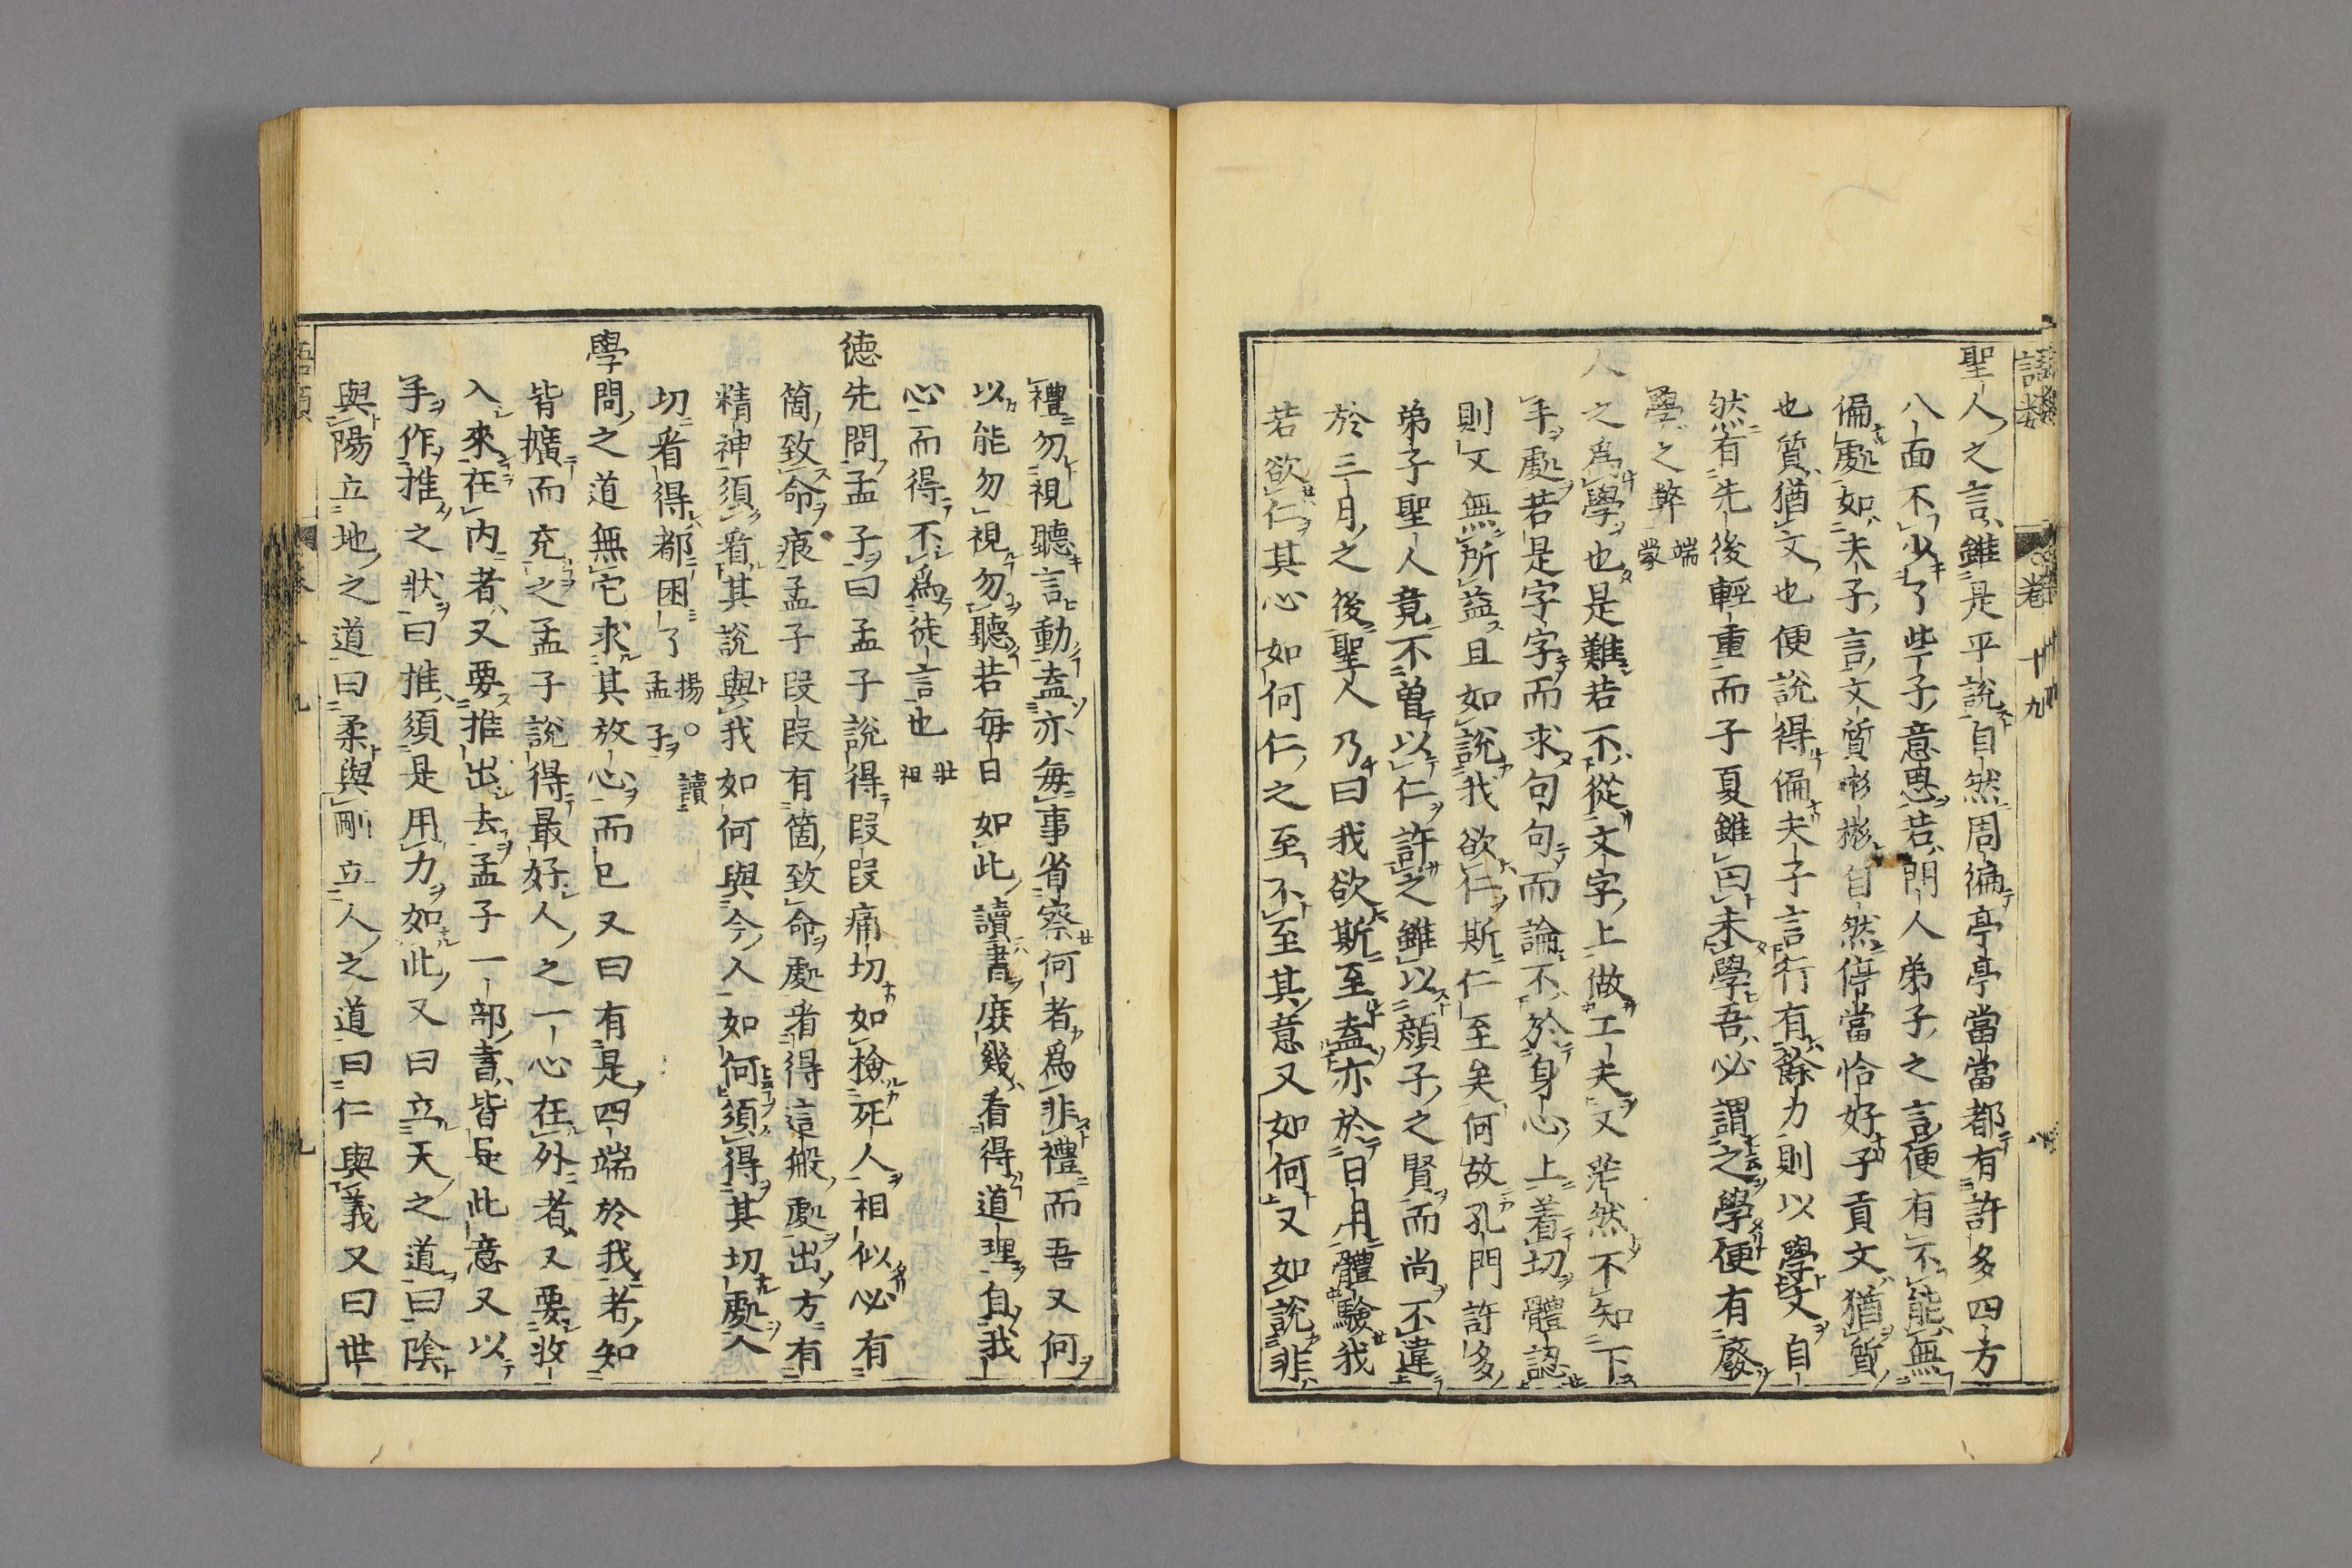 語類 卷十九 八
聖人之言雖是平說自然周徧亭亭當當都有許多四方
八面不少了些子意思若門人弟子之言便有不能無
偏處如夫子言文質彬彬自然停當恰好子貢文猶質
也質猶文也便說得偏夫子言行有餘力則以學文自
然有先後輕重而子夏雖曰未學吾必謂之學便有廢
學之弊 端蒙
人之爲學也是難若不從文字上做工夫又茫然不知下
手處若是字字而求句句而論不於身心上着切體認
則又無所益且如說我欲仁斯仁至矣何故孔門許多
弟子聖人竟不曽以仁許之雖以顏子之賢而尚不違
於三月之後聖人乃曰我欲斯至盍亦於日用體驗我
若欲仁其心如何仁之至不至其意又如何又如說非
禮勿視聽言動盍亦每事省察何者爲非禮而吾又何
以能勿視勿聽若每日如此讀書庶幾看得道理自我
心而得不爲徒言也 壯祖
德先問孟子曰孟子說得段段痛切如檢死人相似必有
箇致命痕孟子段段有箇致命處看得這般處出方有
精神須看其說與我如何與今人如何須得其切處今
切看得都困了 揚○讀孟子
學問之道無它求其放心而已又曰有是四端於我者知
皆擴而充之孟子說得最好人之一心在外者又要收
入來在內者又要推出去孟子一部書皆是此意又以
手作推之狀曰推須是用力如此又曰立天之道曰陰
與陽立地之道曰柔與剛立人之道曰仁與義又曰世
語類 卷十九 九